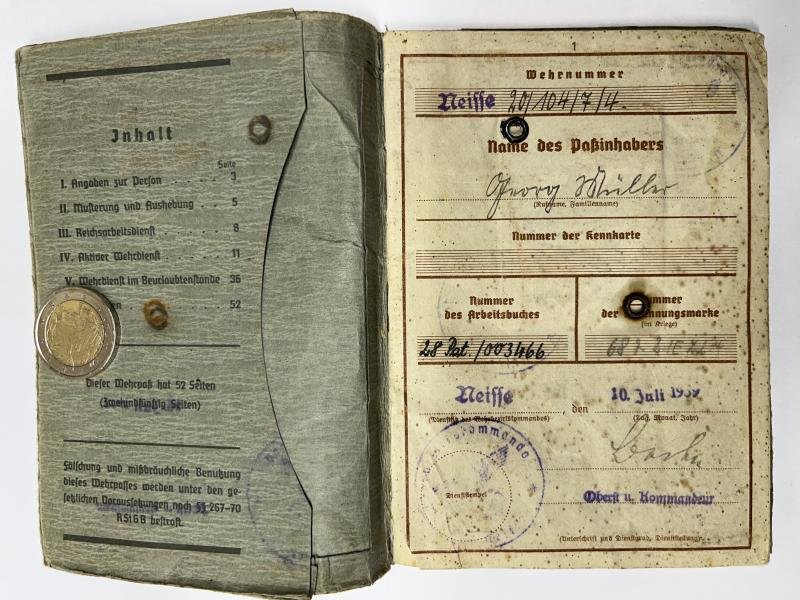 Inhalt
Seite
I. Angaben zur Person . . . . . 3
II. Musterung und Aushebung . . 5
III. Reichsarbeitsdienst . . . . 8
IV. Aktiver Wehrdienst . . . . 11
V. Wehrdienst im Beurlaubtenstande 36
52
Dieser Wehrpaß hat 52 Seiten
(Zweiundfünfzig Seiten)
Fälschung und mißbräuchliche Benutzung
dieses Wehrpasses werden unter den ge-
setzlichen Voraussetzungen nach §§ 267-70
RStGB bestraft.
1
Wehrnummer
Neisse 20/104/7/4.
Name des Paßinhabers
Georg Müller
(Rufname, Familienname)
Nummer der Kennkarte
Nummer
des Arbeitsbuches
28 Pat./003466
der
(im Kriege)
Neisse, den 10. Juli 1939
(Dienstsitz des Wehrbezirkskommandos) (Tag, Monat, Jahr)
Dienststempel
Oberst u. Kommandeur
(Unterschrift und Dienstgrad, Dienststellung)